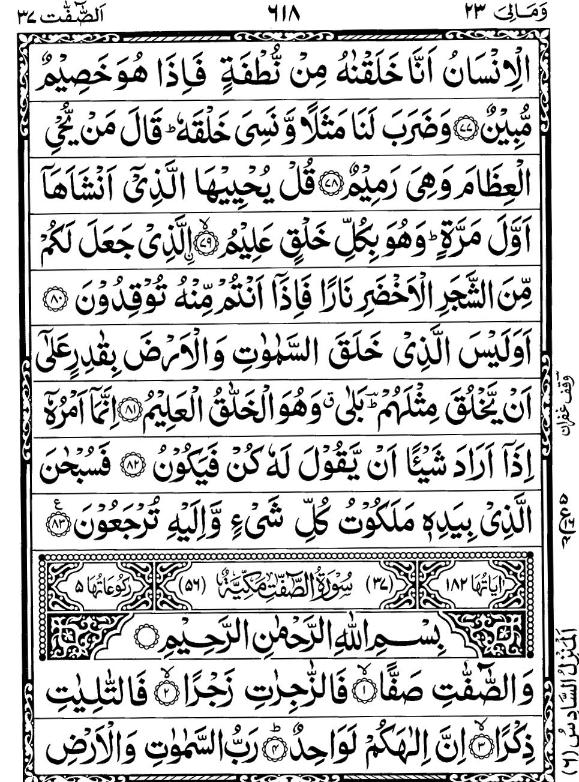 وَمَالِىَ ٢٣
٦١٨
الصّٰٓفّٰت ٣٧
الْاِنْسَانُ اَنَّا خَلَقْنٰهُ مِنْ نُّطْفَةٍ فَاِذَا هُوَ خَصِيْمٌ
مُّبِيْنٌ ﴿٧٧﴾ وَضَرَبَ لَنَا مَثَلًا وَّنَسِىَ خَلْقَهٗ ؕ قَالَ مَنْ يُّحْىِ
الْعِظَامَ وَهِىَ رَمِيْمٌ ﴿٧٨﴾ قُلْ يُحْيِيْهَا الَّذِىْٓ اَنْشَاَهَآ
اَوَّلَ مَرَّةٍ ؕ وَهُوَ بِكُلِّ خَلْقٍ عَلِيْمُ ۙ﴿٧٩﴾ الَّذِىْ جَعَلَ لَكُمْ
مِّنَ الشَّجَرِ الْاَخْضَرِ نَارًا فَاِذَآ اَنْتُمْ مِّنْهُ تُوْقِدُوْنَ ﴿٨٠﴾
اَوَلَيْسَ الَّذِىْ خَلَقَ السَّمٰوٰتِ وَالْاَرْضَ بِقٰدِرٍ عَلٰٓى
اَنْ يَّخْلُقَ مِثْلَهُمْ ؕ بَلٰى ۗ وَهُوَ الْخَلّٰقُ الْعَلِيْمُ ﴿٨١﴾ اِنَّمَآ اَمْرُهٗٓ
اِذَآ اَرَادَ شَيْئًا اَنْ يَّقُوْلَ لَهٗ كُنْ فَيَكُوْنُ ﴿٨٢﴾ فَسُبْحٰنَ
الَّذِىْ بِيَدِهٖ مَلَكُوْتُ كُلِّ شَىْءٍ وَّاِلَيْهِ تُرْجَعُوْنَ ﴿٨٣﴾
اٰيَاتُهَا ١٨٢ (٣٧) سُوْرَةُ الصّٰٓفّٰتِ مَكِّيَّةٌ (٥٦) رُكُوْعَاتُهَا ٥
بِسْمِ اللهِ الرَّحْمٰنِ الرَّحِيْمِ
وَالصّٰٓفّٰتِ صَفًّا ۙ﴿١﴾ فَالزّٰجِرٰتِ زَجْرًا ۙ﴿٢﴾ فَالتّٰلِيٰتِ
ذِكْرًا ۙ﴿٣﴾ اِنَّ اِلٰهَكُمْ لَوَاحِدٌ ؕ﴿٤﴾ رَبُّ السَّمٰوٰتِ وَالْاَرْضِ
وقف غفران
المنزل السادس (٦)